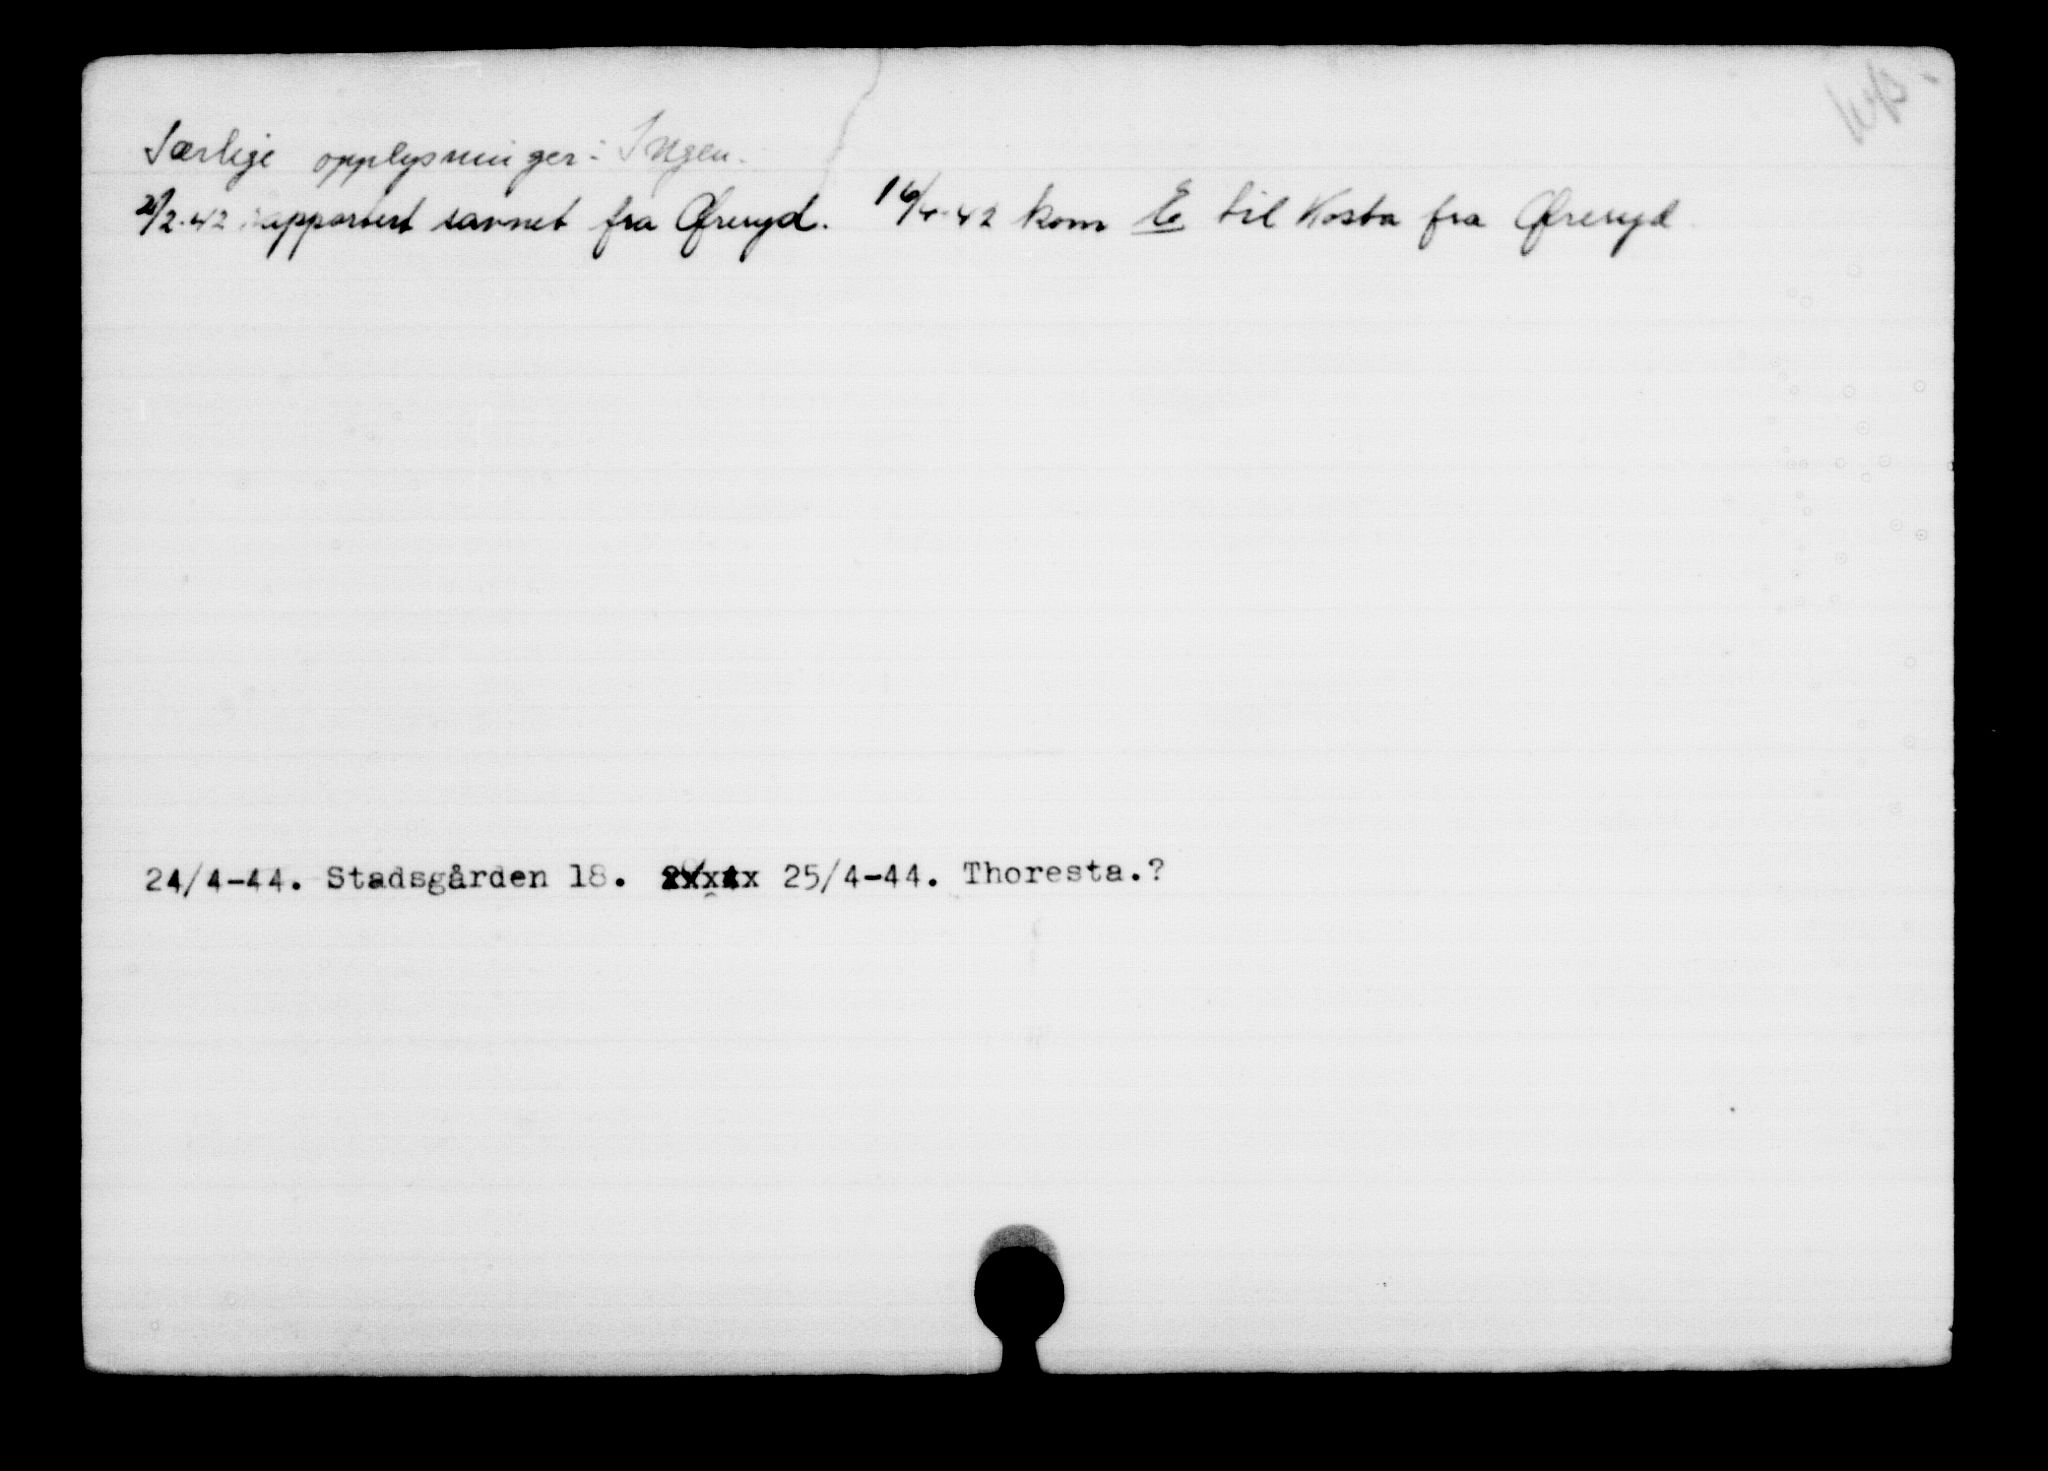 Særlige opplysninger: Ingen.
2/2-42 rapportert savnet fra Øfreryd. 16/4-42 kom E til Kosta fra Øfreryd
24/4-44. Stadsgården 18. 25/4-44. Thoresta.?